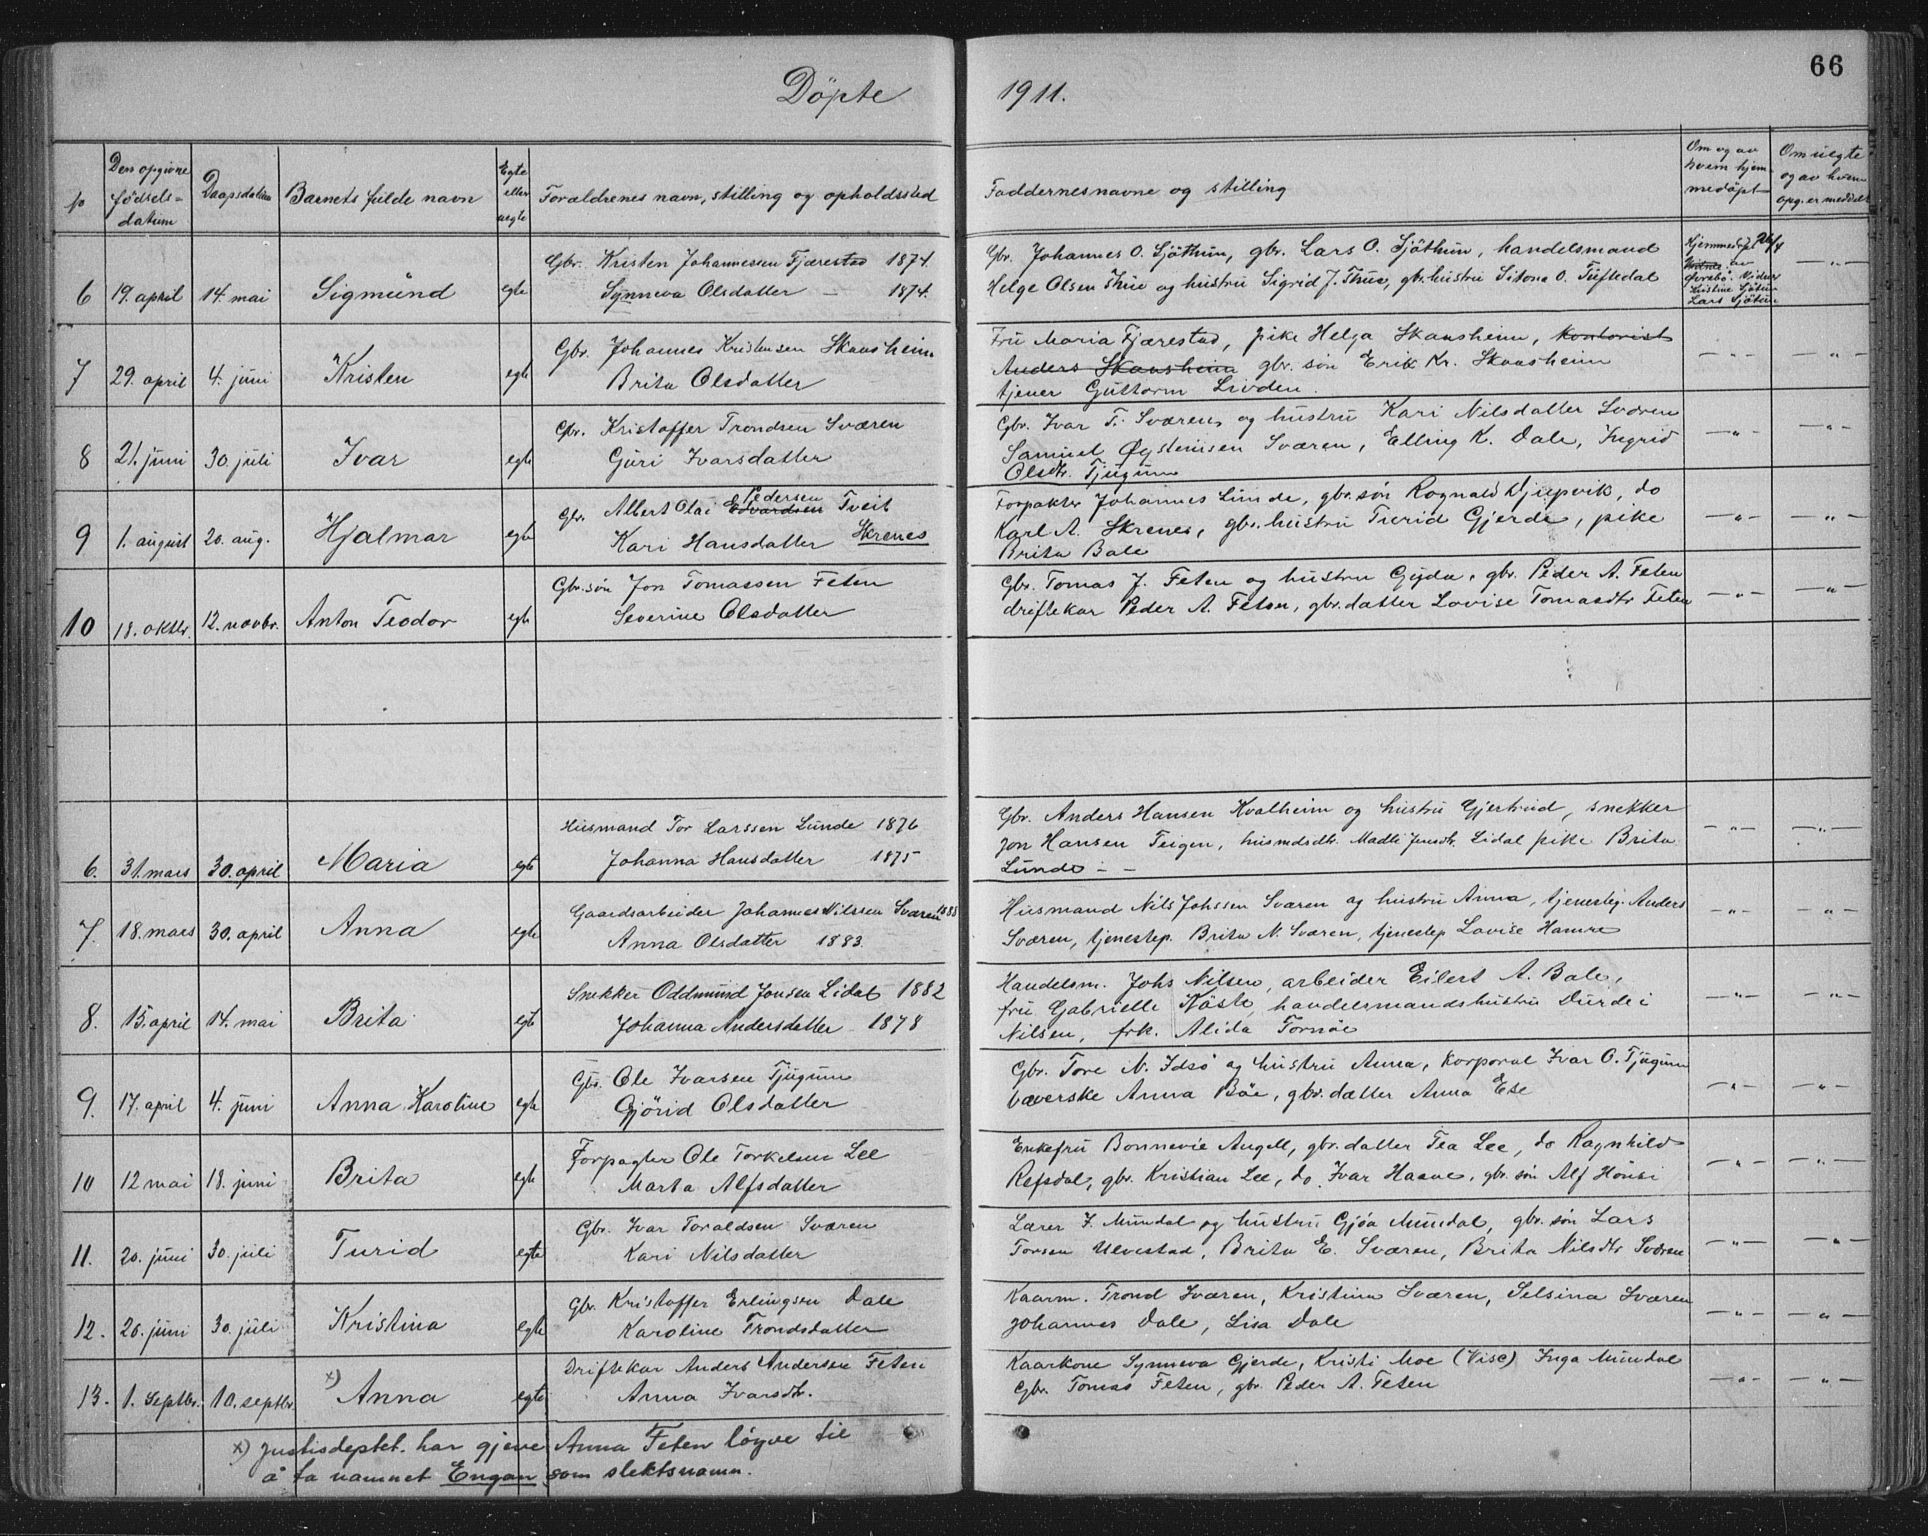 66
Döpte 1911.
№ Den opgivne födsels= datum Daapsdatum Barnets fulde navn Egte eller uegte Forældrenes navn, stilling og opholdssted Faddernes navne og stilling Om og av hvem hjem= medöpt Om uegte og av hvem opg. er meddelt
Gbr. Kristen Johannessen Fjærestad 1874. Gbr. Johannes O. Sjöthun, gbr. Lars O. Sjöthun, handelsmand Hjemmedöpt 26/4
6 19. april 14. mai Sigmund egte Synneva Olsdatter — 1874. Helge Olsen Thue og hustru Sigrid J. Thue, gbr.hustru Sitona O. Tuftedal av Kristine Sjötun Lars Sjötun — " —
Gbr. Johannes Kristensen Skansheim Fru Maria Fjærestad, pike Helga Skansheim, kontorist
7 29. april 4. juni Kristen egte Brita Olsdatter Anders Skansheim gbr. sön Erik Kr. Skansheim — " — — " —
tjener Guttorm Livden.
Gbr. Kristoffer Trondsen Sværen Gbr. Ivar T. Sværen, og hustru Kari Nilsdatter Sværen
8 21. juni 30. juli Ivar egte Guri Ivarsdatter Samuel Øysteinsen Sværen, Elling K. Dale, Ingrid — " — — " —
Olsdtr. Tjugum
Gbr. Albert Olai Edvardsen Pedersen Tveit Forpakter Johannes Linde, gbr. sön Rognald Djupvik, do
9 1. august 20. aug. Hjalmar egte Kari Hansdatter Skrenes Karl A. Skrenes, gbr. hustru Turid Gjerde, pike — " — — " —
Brita Bale
Gbr. sön Jon Tomassen Feten Gbr. Tomas J. Feten og hustru Gyda, gbr. Peder A. Feten
10 18. oktbr. 12. novbr. Anton Teodor egte Severine Olsdatter driftekar Peder A. Feten, gbr.datter Lovise Tomasdtr Feten — " — — " —
Husmand Tor Larssen Lunde 1876 Gbr. Anders Hansen Kvalheim og hustru Gjertrud, snekker
6. 31. mars 30. april Maria egte Johanna Hansdatter 1875 Jon Hansen Teigen, husmdsdtr. Madli Jensdtr. Lidal pike Brita — " — — " —
Lunde - -
Gaardsarbeider Johannes Nilssen Sværen Husmand Nils Johssen Sværen og hustru Anna, tjenestep. Anders
7. 18. mars 30. april Anna egte Anna Olsdatter 1883. Sværen, tjenestep. Brita N. Sværen, tjenestep Lovise Hamre — " — — " —
Snekker Oddmund Jonsen Lidal 1882 Handelsm. Johs Nilsen, arbeider Eilert A. Bale,
8. 15. april 14. mai Brita egte Johanna Andersdatter 1878 fru Gabrielle Kåste, handelsmandshustru Durdei — " — — " —
Nilsen, frk. Alida Tornöe
Gbr. Ole Ivarsen Tjugum Gbr. Tore N. Idsö og hustru Anna, korporal Ivar O. Tjugum
9. 17. april 4. juni Anna Karoline egte Gjörid Olsdatter væverske Anna Böe, gbr. datter Anna Ese — " — — " —
Forpagter Ole Torkelsen Lee Enkefru Bonnevie Angell, gbr. datter Tea Lee, do Ragnhild
10 12 mai 18. juni Brita egte Marta Alfsdatter Refsdal, gbr. Kristian Lee, do Ivar Haave, gbr. sön Alf Hönsi — " — — " —
Gbr. Ivar Toraldsen Sværen Lærer J. Mundal og hustru Gjöa Mundal, gbr. sön Lars
11. 20. juni 30. juli Turid egte Kari Nilsdatter Torsen Ulvestad, Brita E. Sværen, Brita Nilsdtr Sværen — " — — " —
Gbr. Kristoffer Erlingsen Dale Kaarm. Trond Sværen, Kristina Sværen, Selsina Sværen
12. 20. juni 30. juli Kristina egte Karoline Trondsdatter Johannes Dale, Lisa Dale — " — — " —
Driftekar Anders Andersen Feten Kaarkone Synneva Gjerde, Kristi Moe (Vise) Inga Mundal
13. 1. septbr. 10. septbr. x) Anna egte Anna Ivarsdtr. Gbr. Tomas Feten, gbr. Peder A. Feten — " — — " —
x) Justisdeptet. har gjeve Anna Feten löyve til
å ta namnet Engan som slektsnamn.